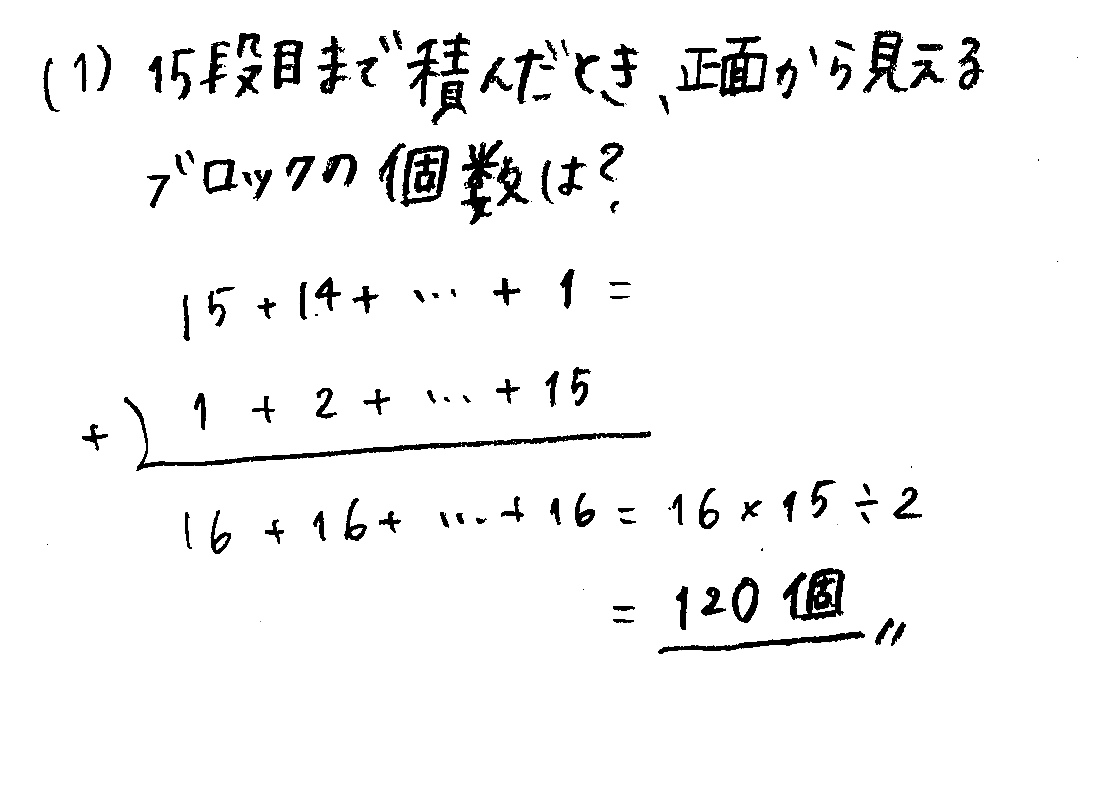 (1) 15段目まで積んだとき、正面から見える
ブロックの個数は?
15 + 14 + … + 1 =
+) 1 + 2 + … + 15
16 + 16 + … + 16 = 16 × 15 ÷ 2
= 120個〃